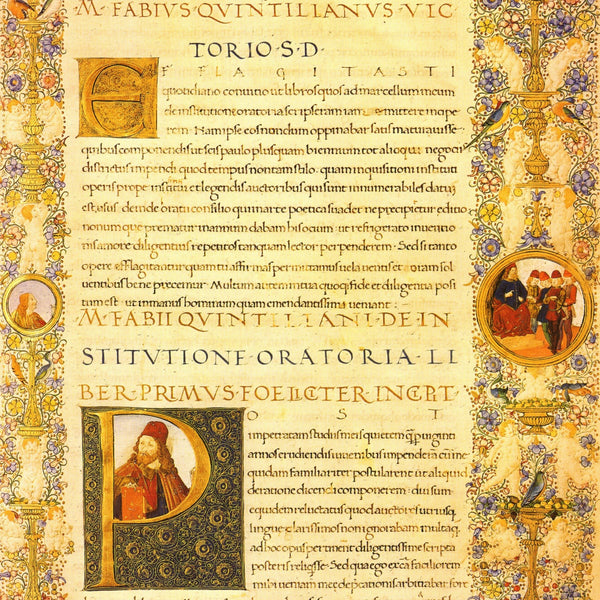 M·FABIVS·QVINTILIANVS·VIC
TORIO·S·D·
EFFLAGITASTI
quotidiano convitio ut libros quos ad marcellum meum
de institutione oratoria scripseram iam emittere inpe
rem. Nam ipse eos nondum oppinabar satis maturuisse
quibus componendis ut scis paulo plus quam biennium tot alioqui negociis
districtus impendi quod tempus non tam stilo quam inquisitioni instituti
operis prope et legendis auctoribus qui sunt innumerabiles datum
est usus deinde orati consilio qui in arte poetica suadet ne precipitetur editio
nonumque prematur in annum dabam his ocium ut refrigerato inventio
nis amore diligentius repetitos tanquam lector perpenderem. Sed si tanto
opere efflagitantur quam tu affirmas permittamus vela ventis et oram sol
ventibus bene precemur. Multum autem in tua quoque fide et diligentia posi
tum est ut in manus hominum quam emendatissimi veniant.
M·FABII QVINTILIANI·DE·IN
STITVTIONE·ORATORIA·LI
BER·PRIMVS·FOELICITER·INCEPT·
POST
impetratam studiis meis quietem quę p viginti
annos erudiendis iuvenibus impenderam cum
quidam familiariter postularent ut aliquid
de ratione dicendi componerem: diu sum
equidem reluctatus quod auctores utriusque
lingue clarissimos non ignorabam multa que
ad hoc opus pertinerent diligentissime scripta
posteris reliquisse. Sed qua ego ex causa faciliorem
mihi veniam meę deprecationis arbitrabar fore